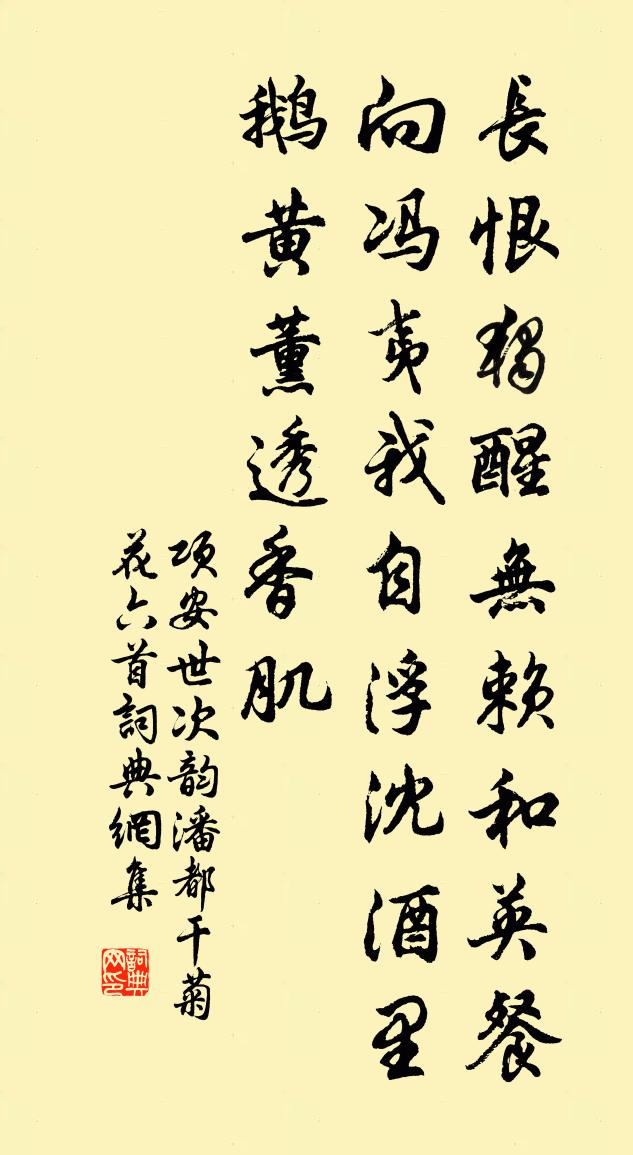 長恨獨醒無賴和英餐
向冯夷我自浮沈酒里
鹅黄薰透香肌
项安世次韵潘都干菊
花六首詞典網集
詞典网印